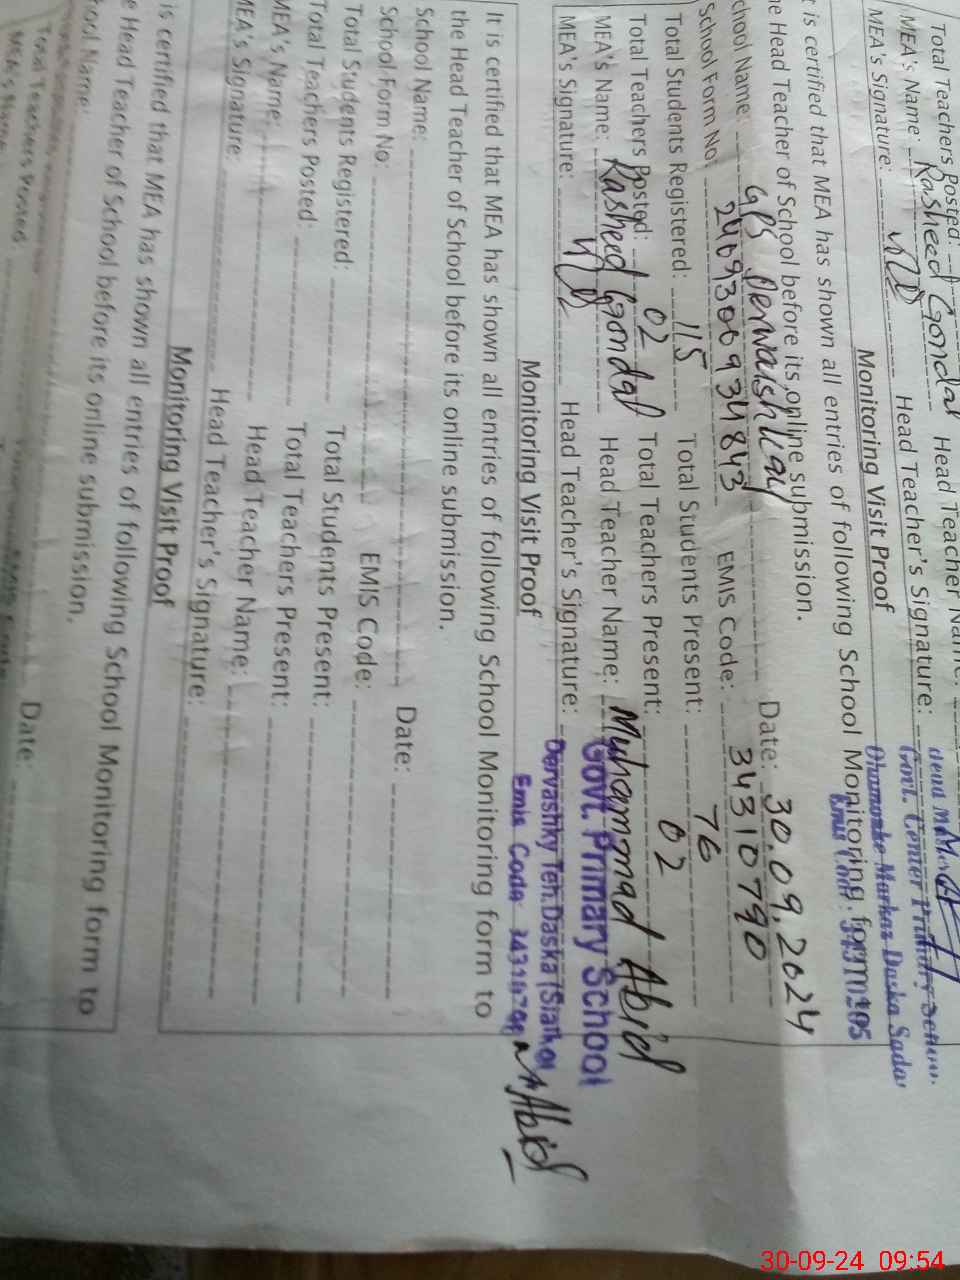 Total Teachers Posted:
MEA's Name: Rasheed Gondal Head Teacher Name:
MEA's Signature: Head Teacher's Signature:
Govt. Center Primary
Dhamonke Markaz Daska Sadar
Monitoring Visit Proof
t is certified that MEA has shown all entries of following School Monitoring form to
he Head Teacher of School before its online submission.
chool Name: GPS Derwaishkay Date: 30.09.2024
School Form No: 2409300934843 EMIS Code: 34310790
Total Students Registered: 115 Total Students Present: 76
Total Teachers Posted: 02 Total Teachers Present: 02
MEA's Name: Rasheed Gondal Head Teacher Name: Muhammad Abid
MEA's Signature: Head Teacher's Signature: M Abid
Govt. Primary School
Dervashky Teh. Daska (Sialkot
Emis Code 34310790
Monitoring Visit Proof
It is certified that MEA has shown all entries of following School Monitoring form to
the Head Teacher of School before its online submission.
School Name: Date:
School Form No: EMIS Code:
Total Students Registered: Total Students Present:
Total Teachers Posted: Total Teachers Present:
MEA's Name: Head Teacher Name:
MEA's Signature: Head Teacher's Signature:
Monitoring Visit Proof
is certified that MEA has shown all entries of following School Monitoring form to
e Head Teacher of School before its online submission.
ool Name: Date:
Total Teachers Posted:
MEA's Name:
30-09-24 09:54